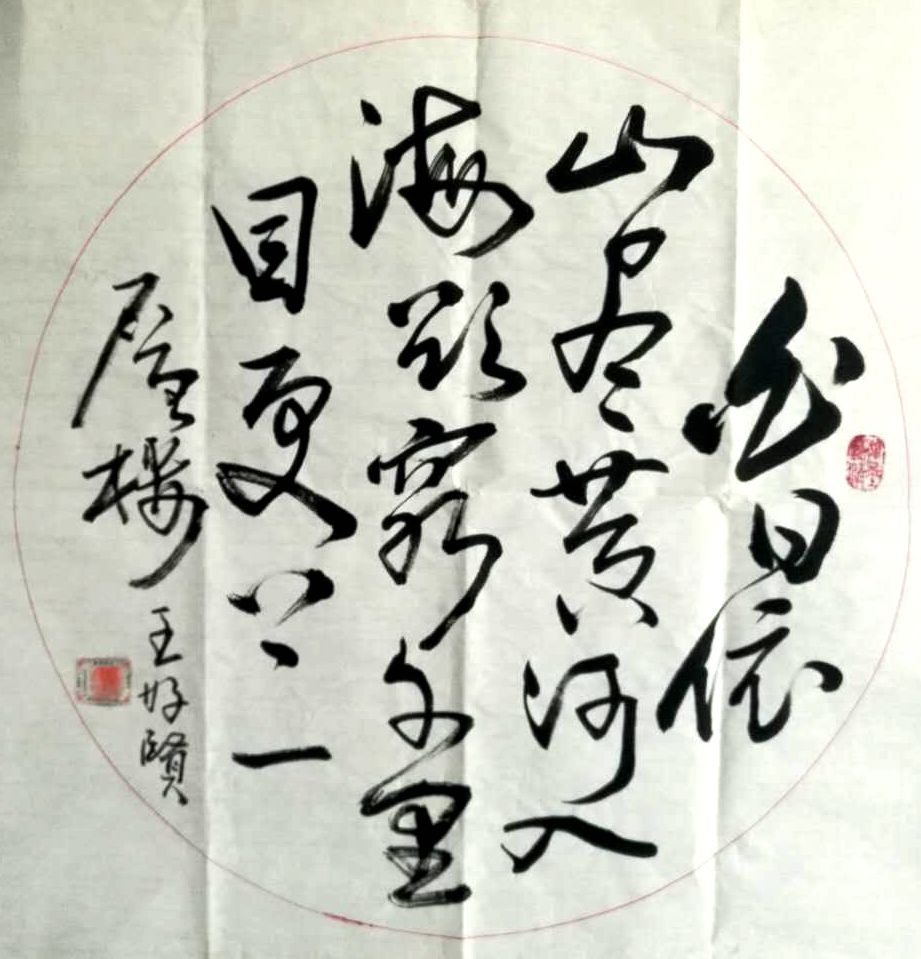 白日依
山尽黄河入
海欲窮千里
目更上一
层楼 王好賢